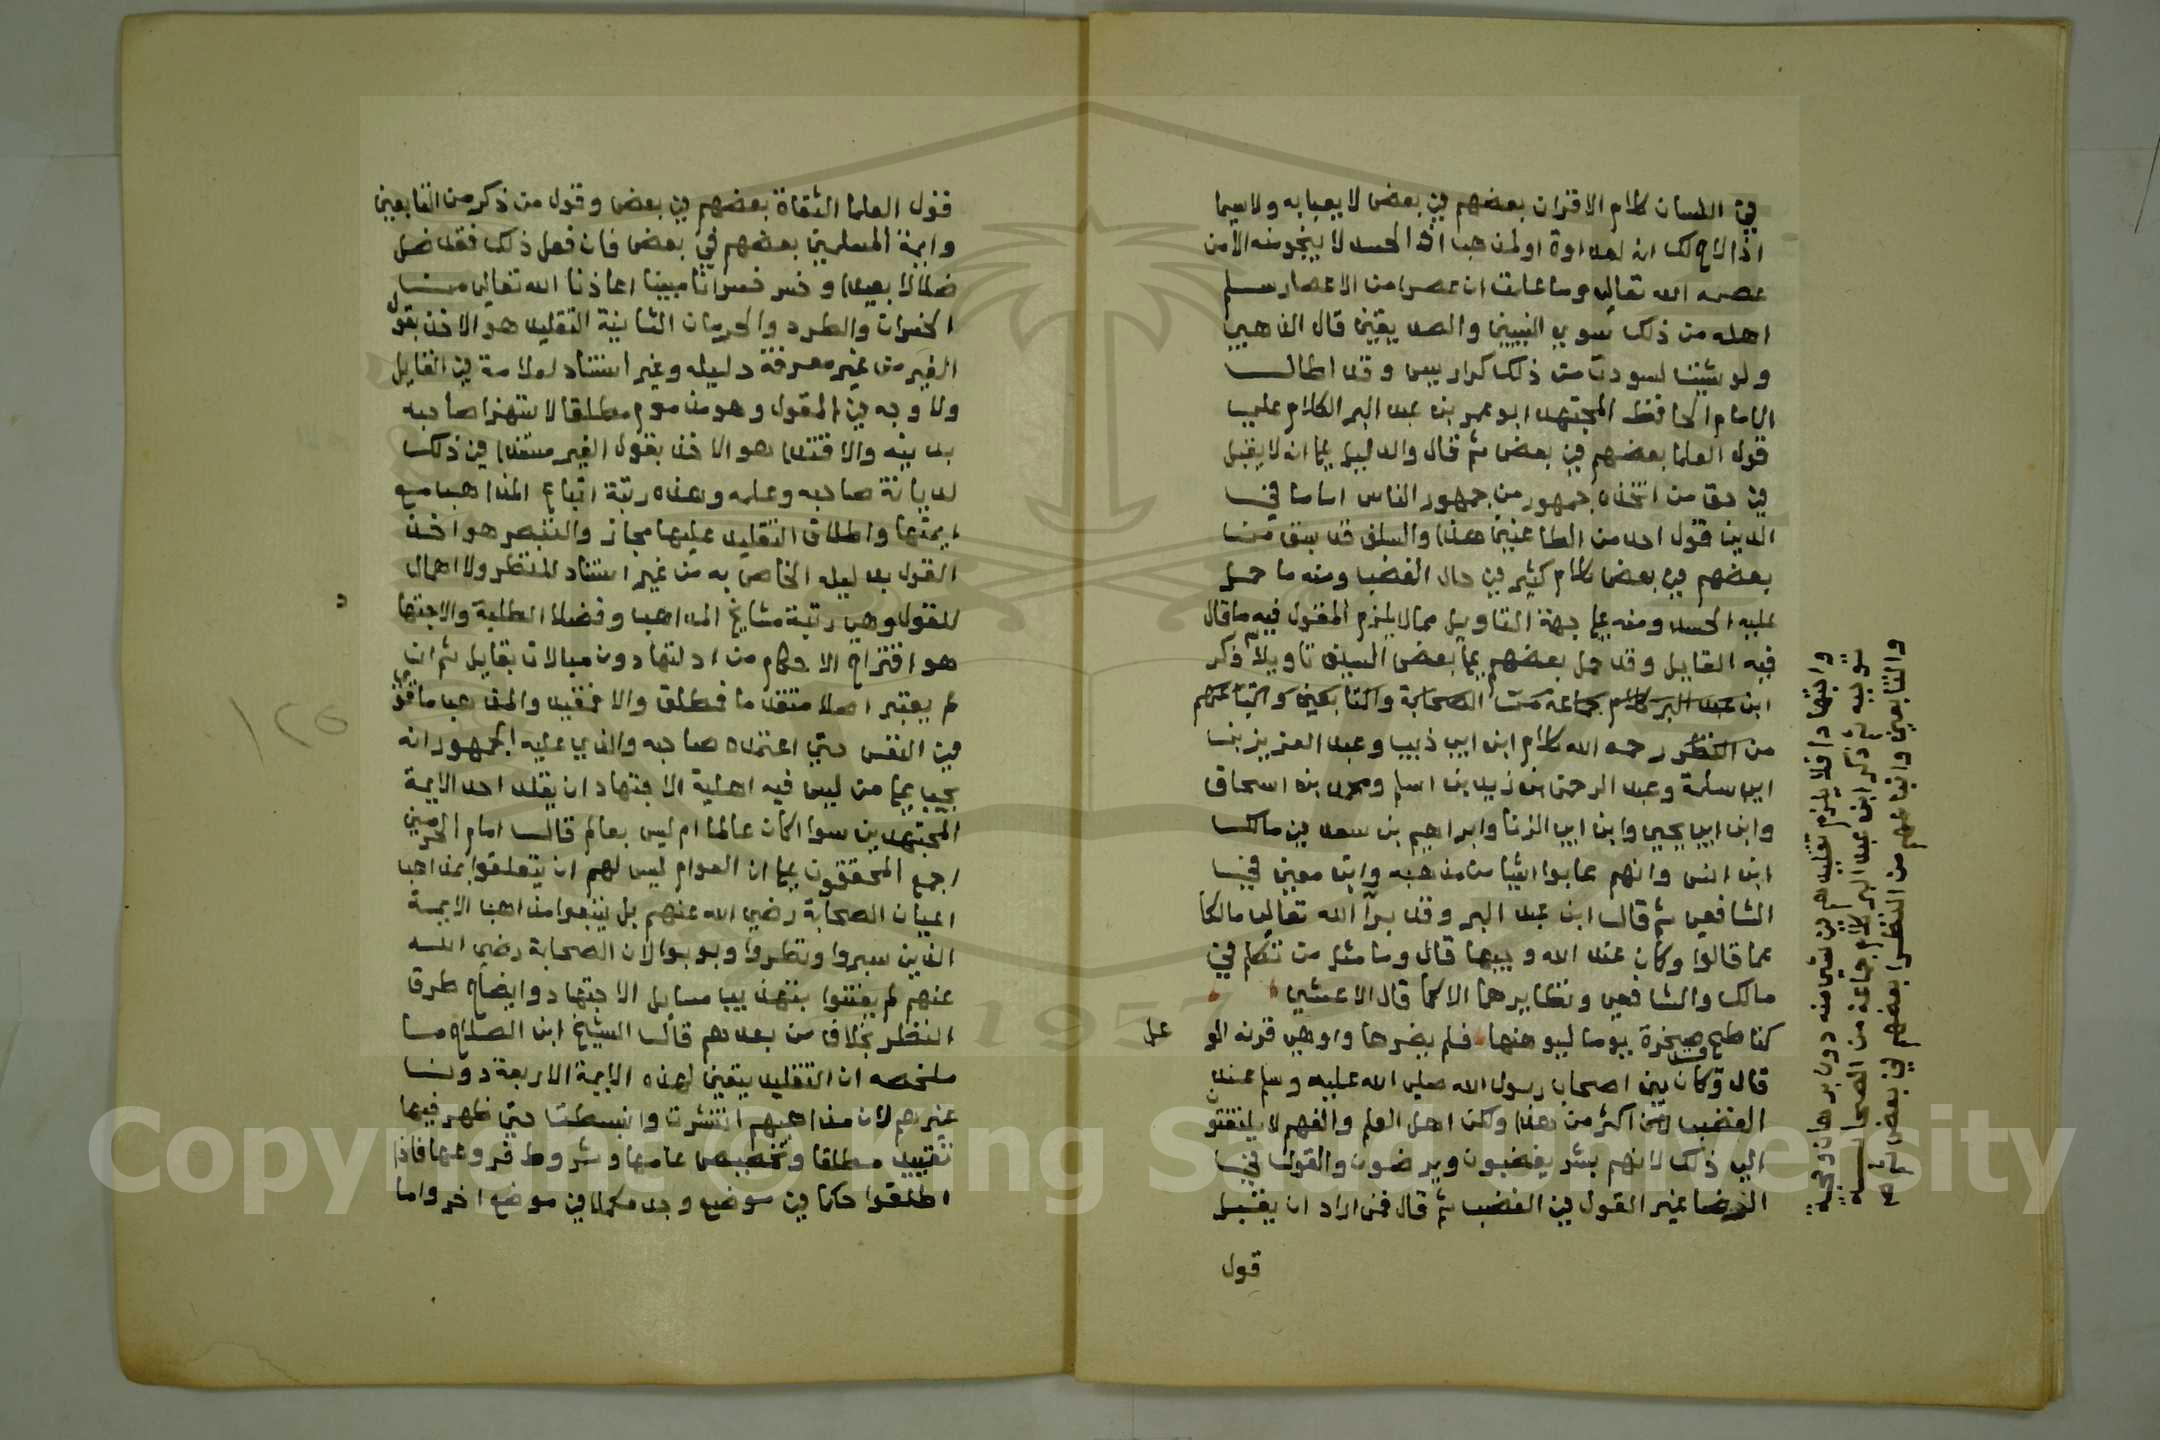 في اللسان كلام الاقران بعضهم في بعض لا يعبا به ولا سيما
اذا لاح لك انه لعداوة او لمذهب اذ الحسد لا ينجو منه الا من
عصمه الله تعالى وما علمت ان عصرا من الاعصار سلم
اهله من ذلك سوى النبيين والصديقين قال الذهبي
ولو شيت لسودت من ذلك كراريس وقد اطال
الامام الحافظ المجتهد ابو عمر بن عبد البر الكلام على
قول العلما بعضهم في بعض ثم قال والدليل على ان لا يقبل
في حق من اتخذه جمهور من جمهور الناس اماما في
الدين قول احد من الطاعنين هذا والسلف قد سبق من
بعضهم في بعض كلام كثير في حال الغضب ومنه ما حمل
عليه الحسد ومنه على جهة التاويل مما لا يلزم المقول فيه ما قال
فيه القايل وقد حمل بعضهم على بعض السيف تاويلا ثم ذكر
ابن عبد البر كلام جماعة من الصحابة والتابعين واتباعهم
من النظر رحمه الله كلام ابن ابي ذييب وعبد العزيز بن
ابي سلمة وعبد الرحمن بن زيد بن اسلم ومحمد بن اسحاق
وابن ابي يحيى وابن ابي الزنا وابراهيم بن سعد في مالك
ابن انس وانهم عابوا اشيا من مذهبه وابن معين في
الشافعي ثم قال ابن عبد البر وقد برأ الله تعالى مالكا
عما قالوا وكان عند الله وجيها قال وما مثل من تكلم في
مالك والشافعي ونظايرهما الا كما قال الاعشى
كناطح صخرة يوما ليوهنها فلم يضرها واوهى قرنه الوعل
قال وقد كان بين اصحاب رسول الله صلى الله عليه وسلم عند
الغضب اكثر من هذا ولكن اهل العلم والفهم لا يلتفتون
الى ذلك لانهم بشر يغضبون ويرضون والقول في
الرضا غير القول في الغضب ثم قال فمن اراد ان يقبل
قول
واجتهادا فلا يلزم تقليدهم في شي منه دون برهان وحجة
توجبه ثم ذكر ابن عبد البر كلام جماعة من الصحابة
والتابعين واتباعهم من النظرا بعضهم في بعض
قول العلما الثقاة بعضهم في بعض وقول من ذكر من التابعين
وايمة المسلمين بعضهم في بعض فان فعل ذلك فقد ضل
ضلالا بعيدا وخسر خسرانا مبينا اعاذنا الله تعالى من
الخسران والطرد والحرمان الثانية التقليد هو الاخذ بقول
الغير من غير معرفة دليله وغير استناد لعلامة في القايل
ولا وجه في المقول وهو مذموم مطلقا لاستهزا صاحبه
بدينه والاقتدا هو الاخذ بقول الغير مستندا في ذلك
لديانة صاحبه وعلمه وهذه رتبة اتباع المذاهب مع
ايمتها واطلاق التقليد عليها مجاز والتبصر هو اخذ
القول بدليله الخاص به من غير استناد للنظر ولا اهمال
للقول وهي رتبة مشايخ المذاهب وفضلا الطلبة والاجتهاد
هو اقتراح الاحكام من ادلتها دون مبالات بقايل ثم ان
لم يعتبر اصلا متقدما فمطلق والا فمقيد والمذهب ما قوي
في النفس حتى اعتمده صاحبه والذي عليه الجمهور انه
يجب على من ليس فيه اهلية الاجتهاد ان يقلد احد الايمة
المجتهدين سوا اكان عالما ام ليس بعالم قال امام الحرمين
اجمع المحققون على ان العوام ليس لهم ان يتعلقوا بمذاهب
اعيان الصحابة رضي الله عنهم بل يتبعوا مذاهب الايمة
الذين سبروا ونظروا وبوبوا لان الصحابة رضي الله
عنهم لم يعتنوا بتهذيب مسايل الاجتهاد وايضاح طرق
النظر بخلاف من بعدهم قال الشيخ ابن الصلاح ما
ملخصه ان التقليد يتعين لهذه الايمة الاربعة دون
غيرهم لان مذاهبهم انتشرت وانبسطت حتى ظهر فيها
تقييد مطلقا وتخصيص عامها وشروط فروعها فاذا
اطلقوا حكما في موضع وجد مكملا في موضع اخر واما